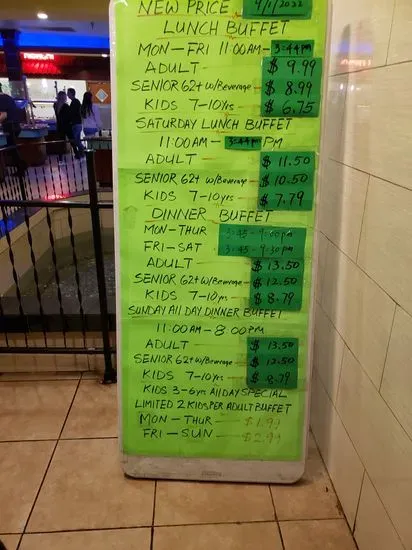 NEW PRICE 4/1/2022
LUNCH BUFFET
MON-FRI 11:00AM- 3:44PM
ADULT $9.99
SENIOR 62+ W/Beverage $8.99
KIDS 7-10yrs $6.75
SATURDAY LUNCH BUFFET
11:00AM- 3:44PM PM
ADULT $11.50
SENIOR 62+ W/Beverage $10.50
KIDS 7-10yrs- $7.79
DINNER BUFFET
MON-THUR 3:45-9:00PM
FRI-SAT 3:45-9:30PM
ADULT $13.50
SENIOR 62+ W/Beverage $12.50
KIDS 7-10yrs $8.79
SUNDAY All DAY DINNER BUFFET
11:00AM-8:00PM
ADULT $13.50
SENIOR 62+ W/Beverage $12.50
KIDS 7-10yrs $8.79
KIDS 3-6yrs All DAY SPECIAL
LIMITED 2 KIDS PER ADULT BUFFET
MON-THUR- $1.99
FRI-SUN- $2.99